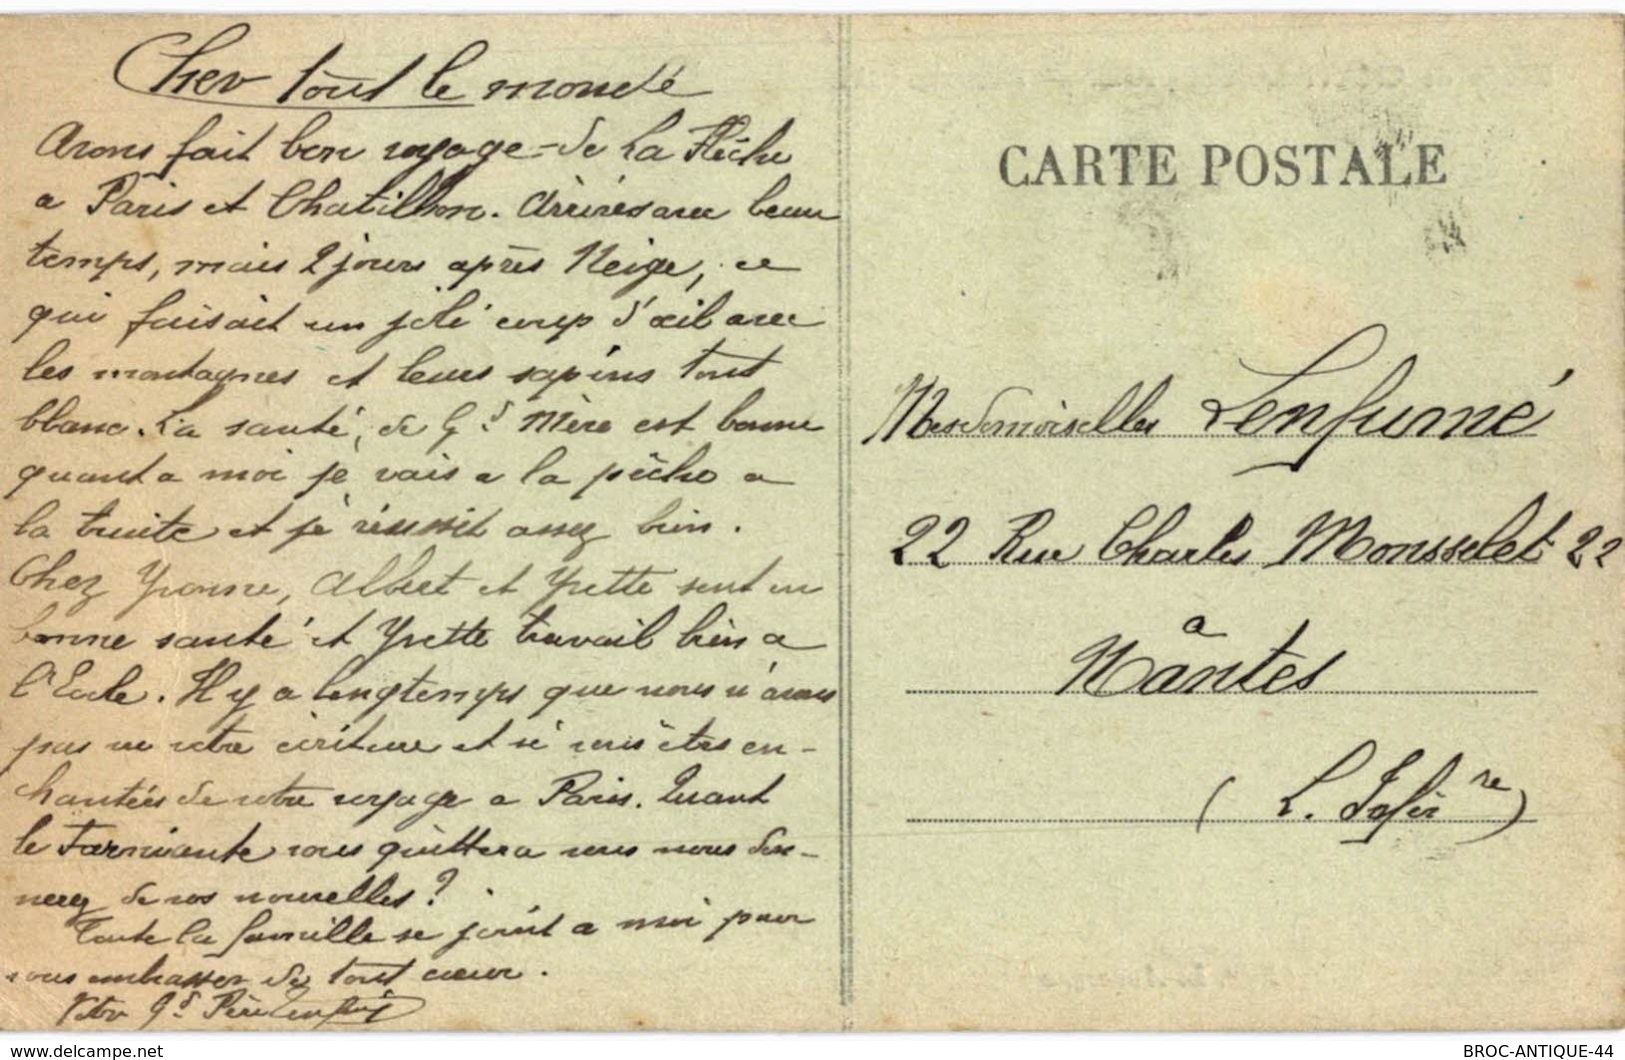 Cher tout le monde
Avons fait bon voyage de La Flèche
a Paris et Chatillon. Arrivés avec beau
temps, mais 2 jours après Neige, ce
qui faisait un joli coup d'œil avec
les montagnes et leurs sapins tout
blanc. La santé, de Gd Mère est bonne
quant a moi je vais a la pêche a
la truite et je réussit assez bien.
Chez Yvonne, Albert et Yvette sont en
bonne santé et Yvette travail bien a
l'Ecole. Il y a longtemps que nous n'avons
pas vu votre écriture et si vous êtes en-
chantées de votre voyage a Paris. Quand
le Farniante vous quittera vous nous don-
nerez de vos nouvelles?
Toute la famille se joint a moi pour
vous embrasser de tout cœur.
Votre Gd Père Lenfumé
CARTE POSTALE
Mesdemoiselles Lenfumé
22 Rue Charles Monsselet 22
a
Nântes
(L. Infér re)
www.delcampe.net
BROC-ANTIQUE-44